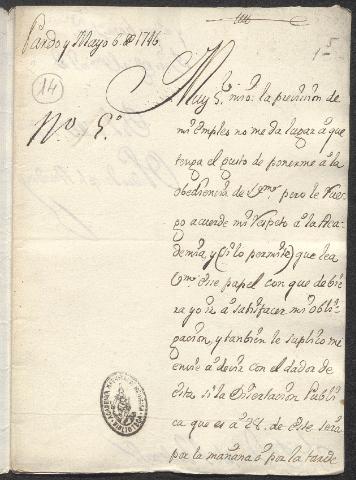 Pardo y Mayo 6. de 1746.
1-5
14
Nº. 5º.
Muy S.r mio: la precision de
mi empleo no me da lugar a que
tenga el gusto de ponerme a la
obediencia de V.md pero le Rue-
go acuerde mi respeto a la Aca-
demia, y (si lo permite) que lea
V.md este papel con que debie-
ra yo ir a satisfacer mi obli-
gacion, y tambien le suplico me
envie a decir con el dador de
esta, si la Disertacion Publi-
ca que es a 28. de este, sera
por la mañana, o por la tarde